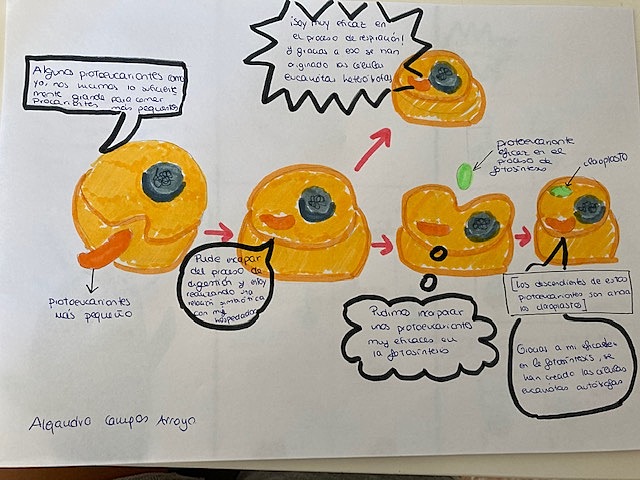 ¡Soy muy eficaz en
el proceso de respiración!
y gracias a eso se han
originado las células
eucariotas heterótrofas
Algunos protoeucariontes como
yo, nos hicimos lo suficiente
mente grande para comer
procariontes más pequeños
protoeucariontes
más pequeño
Pude escapar
del proceso de
digestión y estoy
realizando una
relación simbiótica
con my hospedador
protoeucarionte
eficaz en el
proceso de
fotosíntesis
cloroplasto
Pudimos incorporar
unos protoeucarionta
muy eficaces en
la fotosíntesis
[Los descendientes de estos
protoeucariontes son ahora
los cloroplastos]
Gracias a mi eficacia
en la fotosíntesis, se
han creado las células
eucariotas autótrofas
Alejandro Campos Arroyo